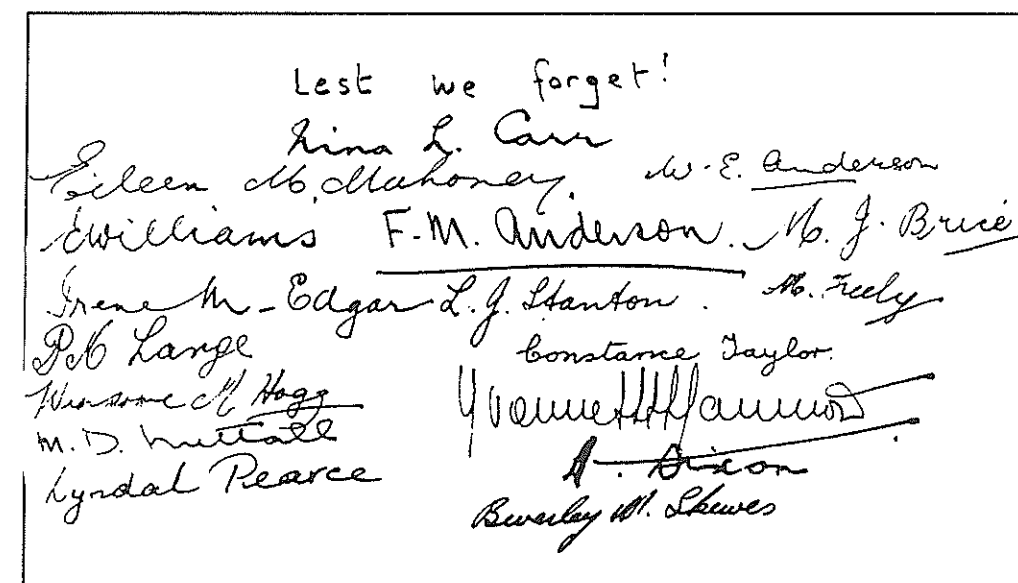 Lest we forget!
Nina L. Carr
Eileen M. Mahoney. W. E. Anderson
E Williams F. M. Anderson. M. J. Brice
Irene M. Edgar L. J. Stanton. M. Feely
P Lange Constance Taylor.
Winsome M Hogg Yvonne Hammond
M. D. Nuttall A. Dixon
Lyndal Pearce Beverley M. Skewes